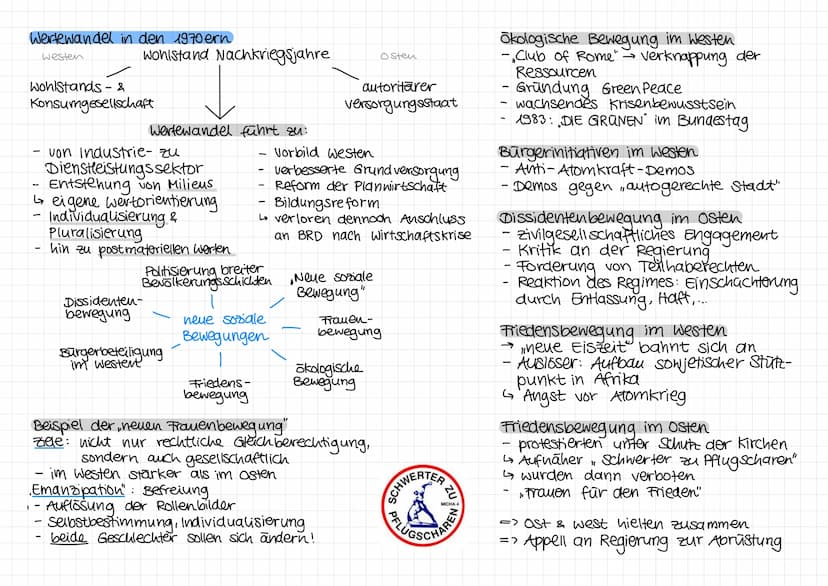 Wertewandel in den 1970ern
Westen
Wohlstand Nachkriegsjahre
Osten
Wohlstands- &
Konsumgesellschaft
autoritärer
Versorgungsstaat
Wertewandel führt zu:
- von Industrie- zu
Dienstleistungssektor
- Entstehung von Milieus
↳ eigene Wertorientierung
- Individualisierung &
Pluralisierung
- hin zu postmateriellen Werten
- Vorbild Westen
- verbesserte Grundversorgung
- Reform der Planwirtschaft
- Bildungsreform
↳ verloren dennoch Anschluss
an BRD nach Wirtschaftskrise
Politisierung breiter
Bevölkerungsschichten
„Neue soziale
Bewegung"
Dissidenten-
bewegung
neue soziale
Bewegungen
Frauen-
bewegung
Bürgerbeteiligung
im Westen
Friedens-
bewegung
ökologische
Bewegung
Beispiel der „neuen Frauenbewegung"
Ziele: nicht nur rechtliche Gleichberechtigung,
sondern auch gesellschaftlich
- im Westen stärker als im Osten
„Emanzipation": Befreiung
- Auflösung der Rollenbilder
- Selbstbestimmung, Individualisierung
- beide Geschlechter sollen sich ändern!
SCHWERTER ZU
PFLUGSCHAREN
MICHA 4
Ökologische Bewegung im Westen
- „Club of Rome" → Verknappung der
Ressourcen
- Gründung GreenPeace
- wachsendes Krisenbewusstsein
- 1983: „DIE GRÜNEN" im Bundestag
Bürgerinitiativen im Westen
- Anti-Atomkraft-Demos
- Demos gegen „autogerechte Stadt"
Dissidentenbewegung im Osten
- zivilgesellschaftliches Engagement
- Kritik an der Regierung
- Forderung von Teilhaberechten
- Reaktion des Regimes: Einschüchterung
durch Entlassung, Haft,...
Friedensbewegung im Westen
→ „neue Eiszeit" bahnt sich an
- Auslöser: Aufbau sowjetischer Stütz-
punkt in Afrika
↳ Angst vor Atomkrieg
Friedensbewegung im Osten
- protestierten unter Schutz der Kirchen
↳ Aufnäher „Schwerter zu Pflugscharen"
↳ wurden dann verboten
- „Frauen für den Frieden"
=> Ost & West hielten zusammen
=> Appell an Regierung zur Abrüstung